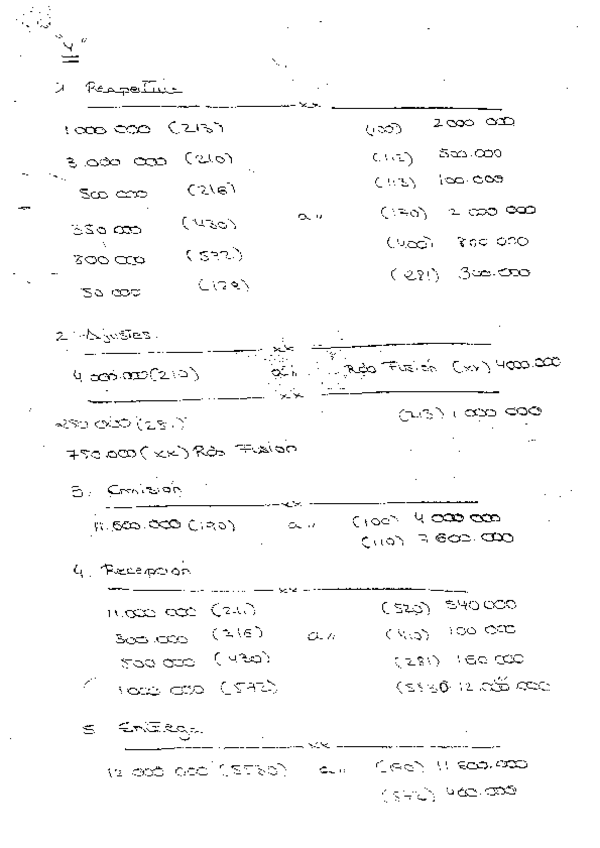 "Y"
1 Reapertura
xx
1 000 000 (213) (100) 2 000 000
3.000 000 (210) (112) 500.000
500 000 (216) (113) 100.000
350 000 (430) a " (170) 2 000 000
300 000 (572) (400) 300 000
50 000 (129) (281) 300.000
2. Ajustes.
xx
4 000.000 (210) a " Rdo Fusión (xx) 4000.000
xx
250 000 (281) (213) 1 000 000
750.000 (xx) Rdo Fusión
3. Emisión
xx
11.600.000 (190) a " (100) 4 000 000
(110) 7 600.000
4. Recepción
xx
11.000 000 (211) (520) 540 000
300.000 (216) a " 100 000
500 000 (430) (281) 160 000
1 000 000 (572) (5530) 12.000 000
5 Entrega
xx
12 000 000 (5530) a " (190) 11 600.000
(572) 400.000